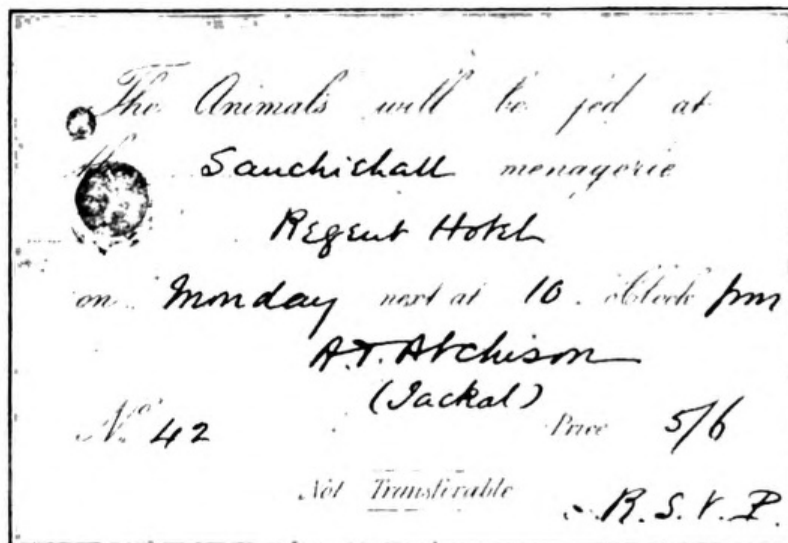 The Animals will be fed at
the Sauchichall menagerie
Regent Hotel
on Monday next at 10 o'Clock pm
A.T. Atchison
(Jackal)
No. 42 Price 5/6
Not Transferable
R.S.V.P.